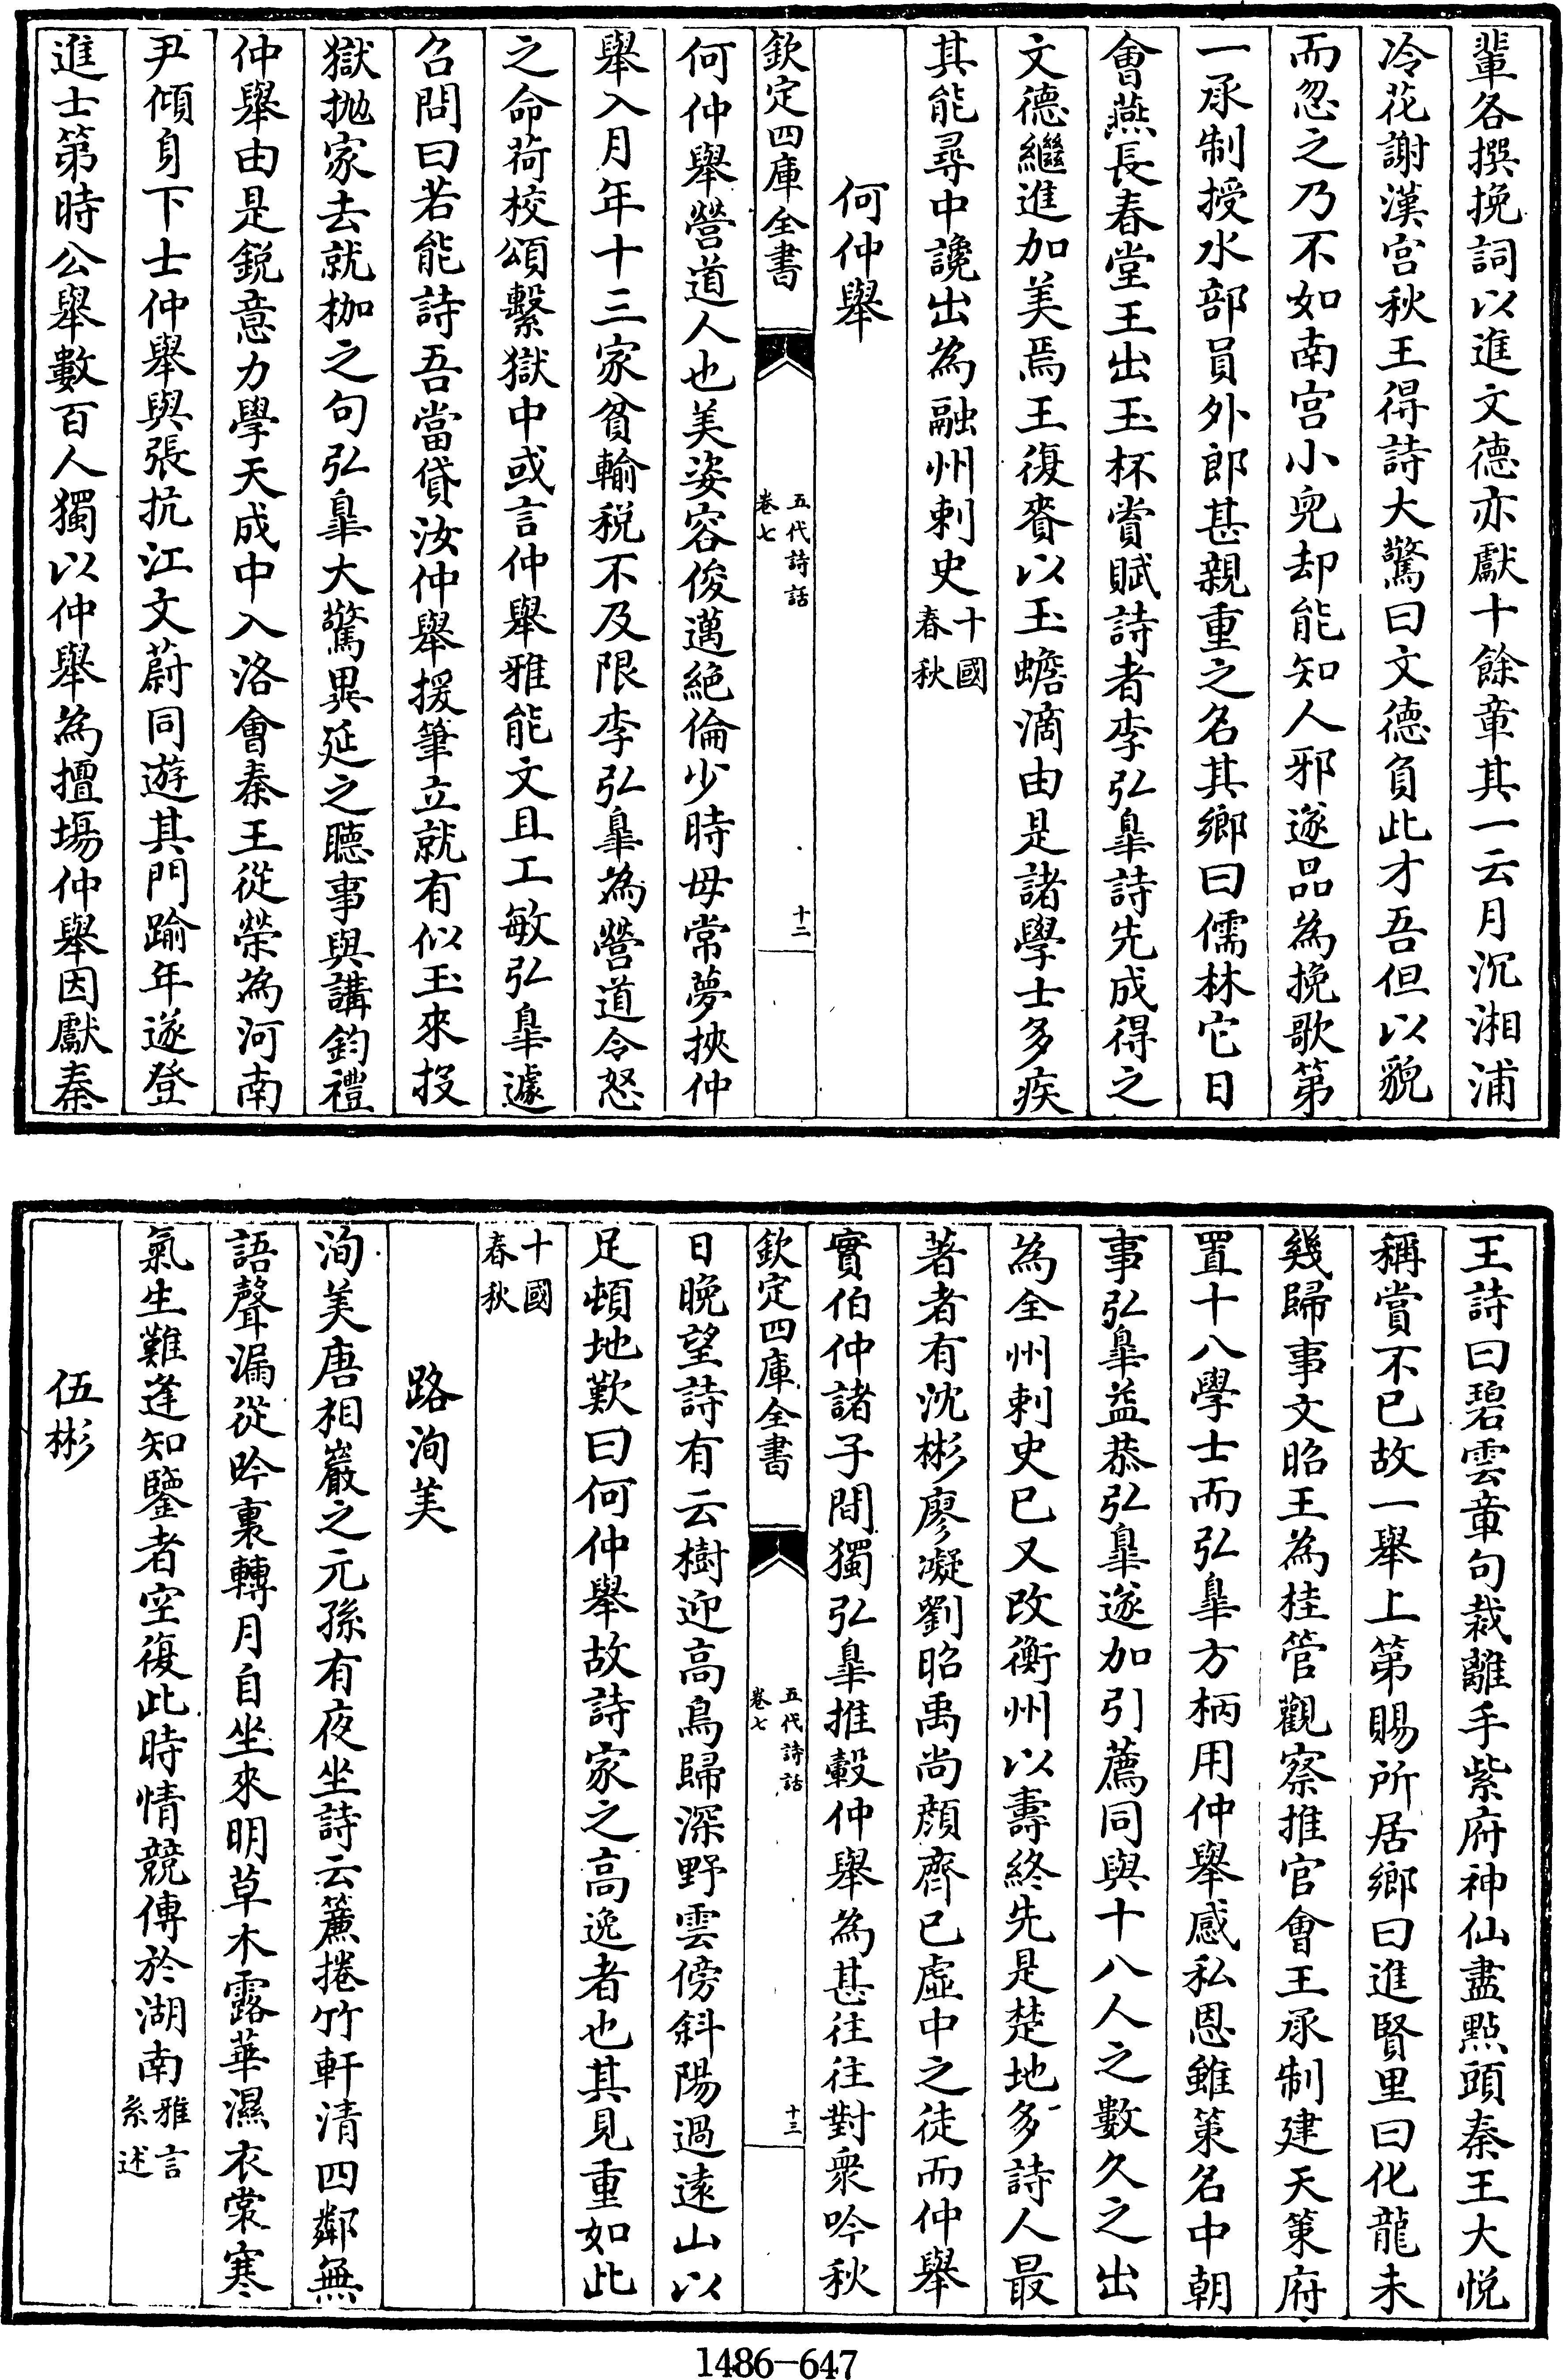 輩各撰挽詞以進文德亦獻十餘章其一云月沉湘浦
冷花謝漢宫秋王得詩大驚曰文德負此才吾但以貌
而忽之乃不如南宫小兒却能知人邪遂品為挽歌第
一承制授水部員外郎甚親重之名其鄉曰儒林它日
會燕長春堂王出玉杯賞賦詩者李弘臯詩先成得之
文德繼進加美焉王復賚以玉蟾滴由是諸學士多疾
其能尋中讒出為融州刺史十國春秋
何仲舉
欽定四庫全書
五代詩話
卷七
十二
何仲舉營道人也美姿容俊邁絶倫少時母常夢挾仲
舉入月年十三家貧輸税不及限李弘臯為營道令怒
之命荷校頌繫獄中或言仲舉雅能文且工敏弘臯遽
召問曰若能詩吾當貸汝仲舉援筆立就有似玉來投
獄抛家去就枷之句弘臯大驚異延之聽事與講鈞禮
仲舉由是鋭意力學天成中入洛會秦王從榮為河南
尹傾身下士仲舉與張抗江文蔚同遊其門踰年遂登
進士第時公舉數百人獨以仲舉為擅塲仲舉因獻秦
王詩曰碧雲章句裁離手紫府神仙盡點頭秦王大悦
稱賞不已故一舉上第賜所居鄉曰進賢里曰化龍未
幾歸事文昭王為桂管觀察推官會王承制建天策府
置十八學士而弘臯方柄用仲舉感私恩雖策名中朝
事弘臯益恭弘臯遂加引薦同與十八人之數久之出
為全州刺史已又改衡州以壽終先是楚地多詩人最
著者有沈彬廖凝劉昭禹尚顔齊已虚中之徒而仲舉
實伯仲諸子間獨弘臯推轂仲舉為甚往往對衆吟秋
欽定四庫全書
五代詩話
卷七
十三
日晩望詩有云樹迎高鳥歸深野雲傍斜陽過遠山以
足頓地歎曰何仲舉故詩家之高逸者也其見重如此
十國春秋
路洵美
洵美唐相巖之元孫有夜坐詩云簾捲竹軒清四鄰無
語聲漏從吟裏轉月自坐來明草木露華濕衣裳寒
氣生難逢知鑒者空復此時情競傳於湖南雅言系述
伍彬
1486-647